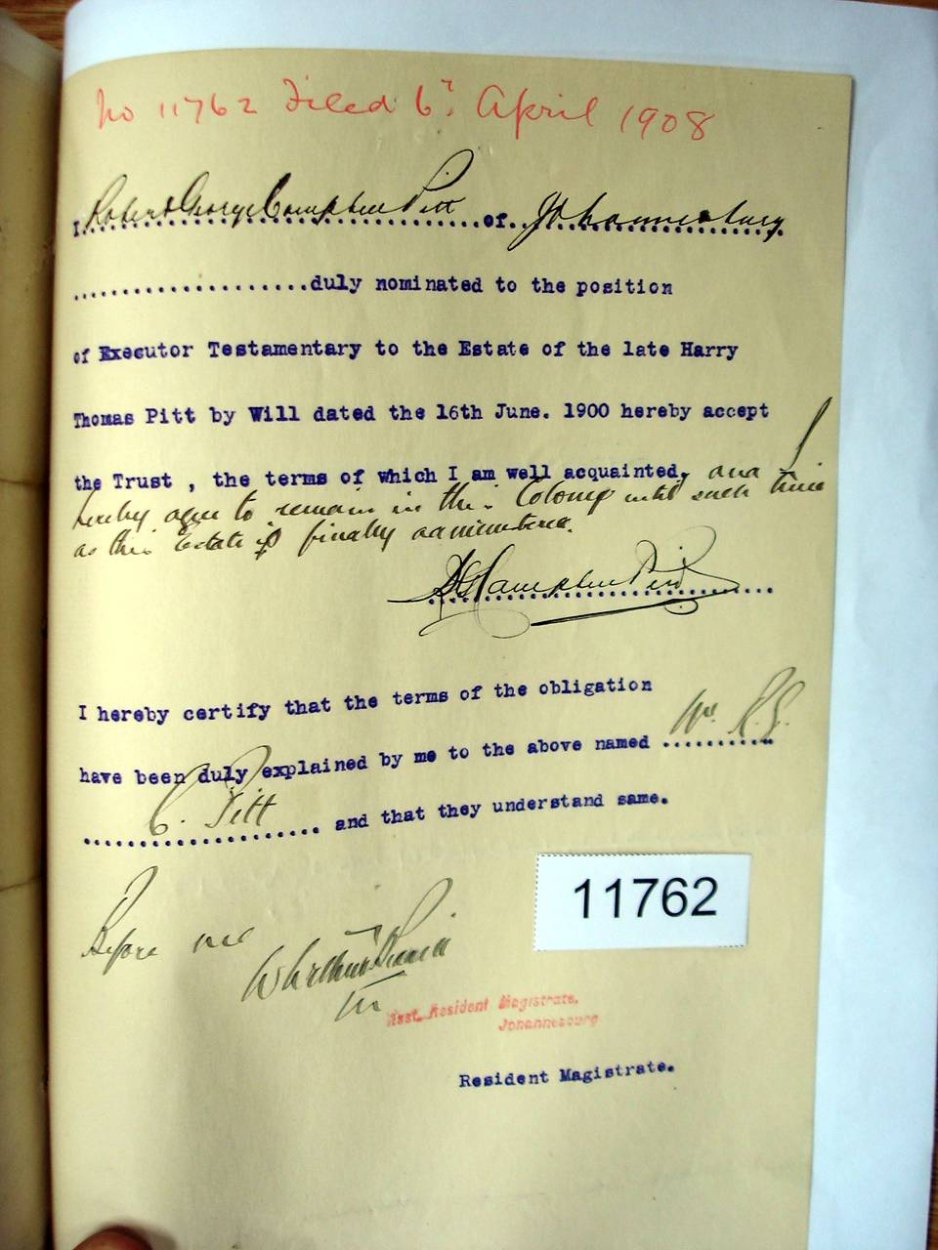 No 11762 Filed 6th April 1908
I Robert George Campbell Pitt of Johannesburg
....................duly nominated to the position
of Executor Testamentary to the Estate of the late Harry
Thomas Pitt by Will dated the 16th June. 1900 hereby accept
the Trust , the terms of which I am well acquainted, and I
hereby agree to remain in this Colony until such time
as this Estate is finally administered.
RG Campbell Pitt
I hereby certify that the terms of the obligation
have been duly explained by me to the above named Mr R.G.
C. Pitt and that they understand same.
11762
Before me
Asst. Resident Magistrate.
Johannesburg
Resident Magistrate.